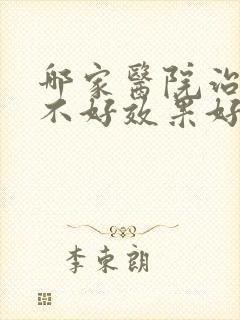 哪家醫院治
不好效果好
李東朗